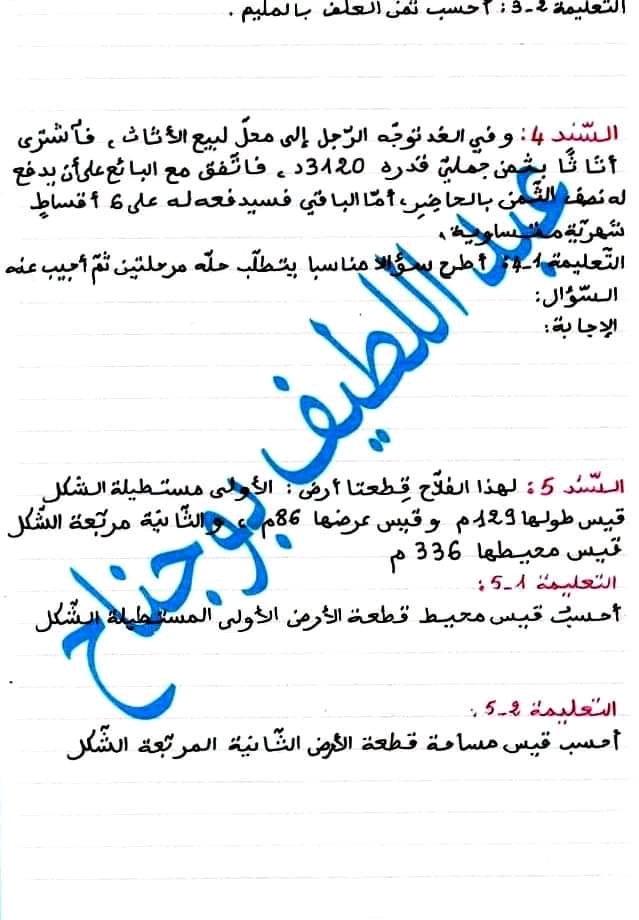 التعليمة 2-3: أحسب ثمن العلف بالمليم.
السّند 4: و في الغد توجّه الرّجل إلى محلّ لبيع الأثاث، فآشترى
أثاثًا بثمن جمليّ قدره 3120د، فاتّفق مع البائع على أن يدفع
له نصف الثّمن بالحاضر، أمّا الباقي فسيدفعه له على 6 أقساطٍ
شهريّة متساوية.
التّعليمة 1-4: أطرح سؤالا مناسبا يتطلّب حلّه مرحلتين ثمّ أجيب عنه
السّؤال:
الإجابة:
السّند 5: لهذا الفلّاح قِطعتا أرض: الأولى مستطيلة الشكل
قيس طولها 129م وقيس عرضها 86م، والثّانية مربّعة الشّكل
قيس محيطها 336 م
التعليمة 1-5:
أحسب قيس محيط قطعة الأرض الأولى المستطيلة الشّكل
التّعليمة 2-5:
أحسب قيس مساحة قطعة الأرض الثّانية المربّعة الشّكل
عبد اللطيف بوجناح